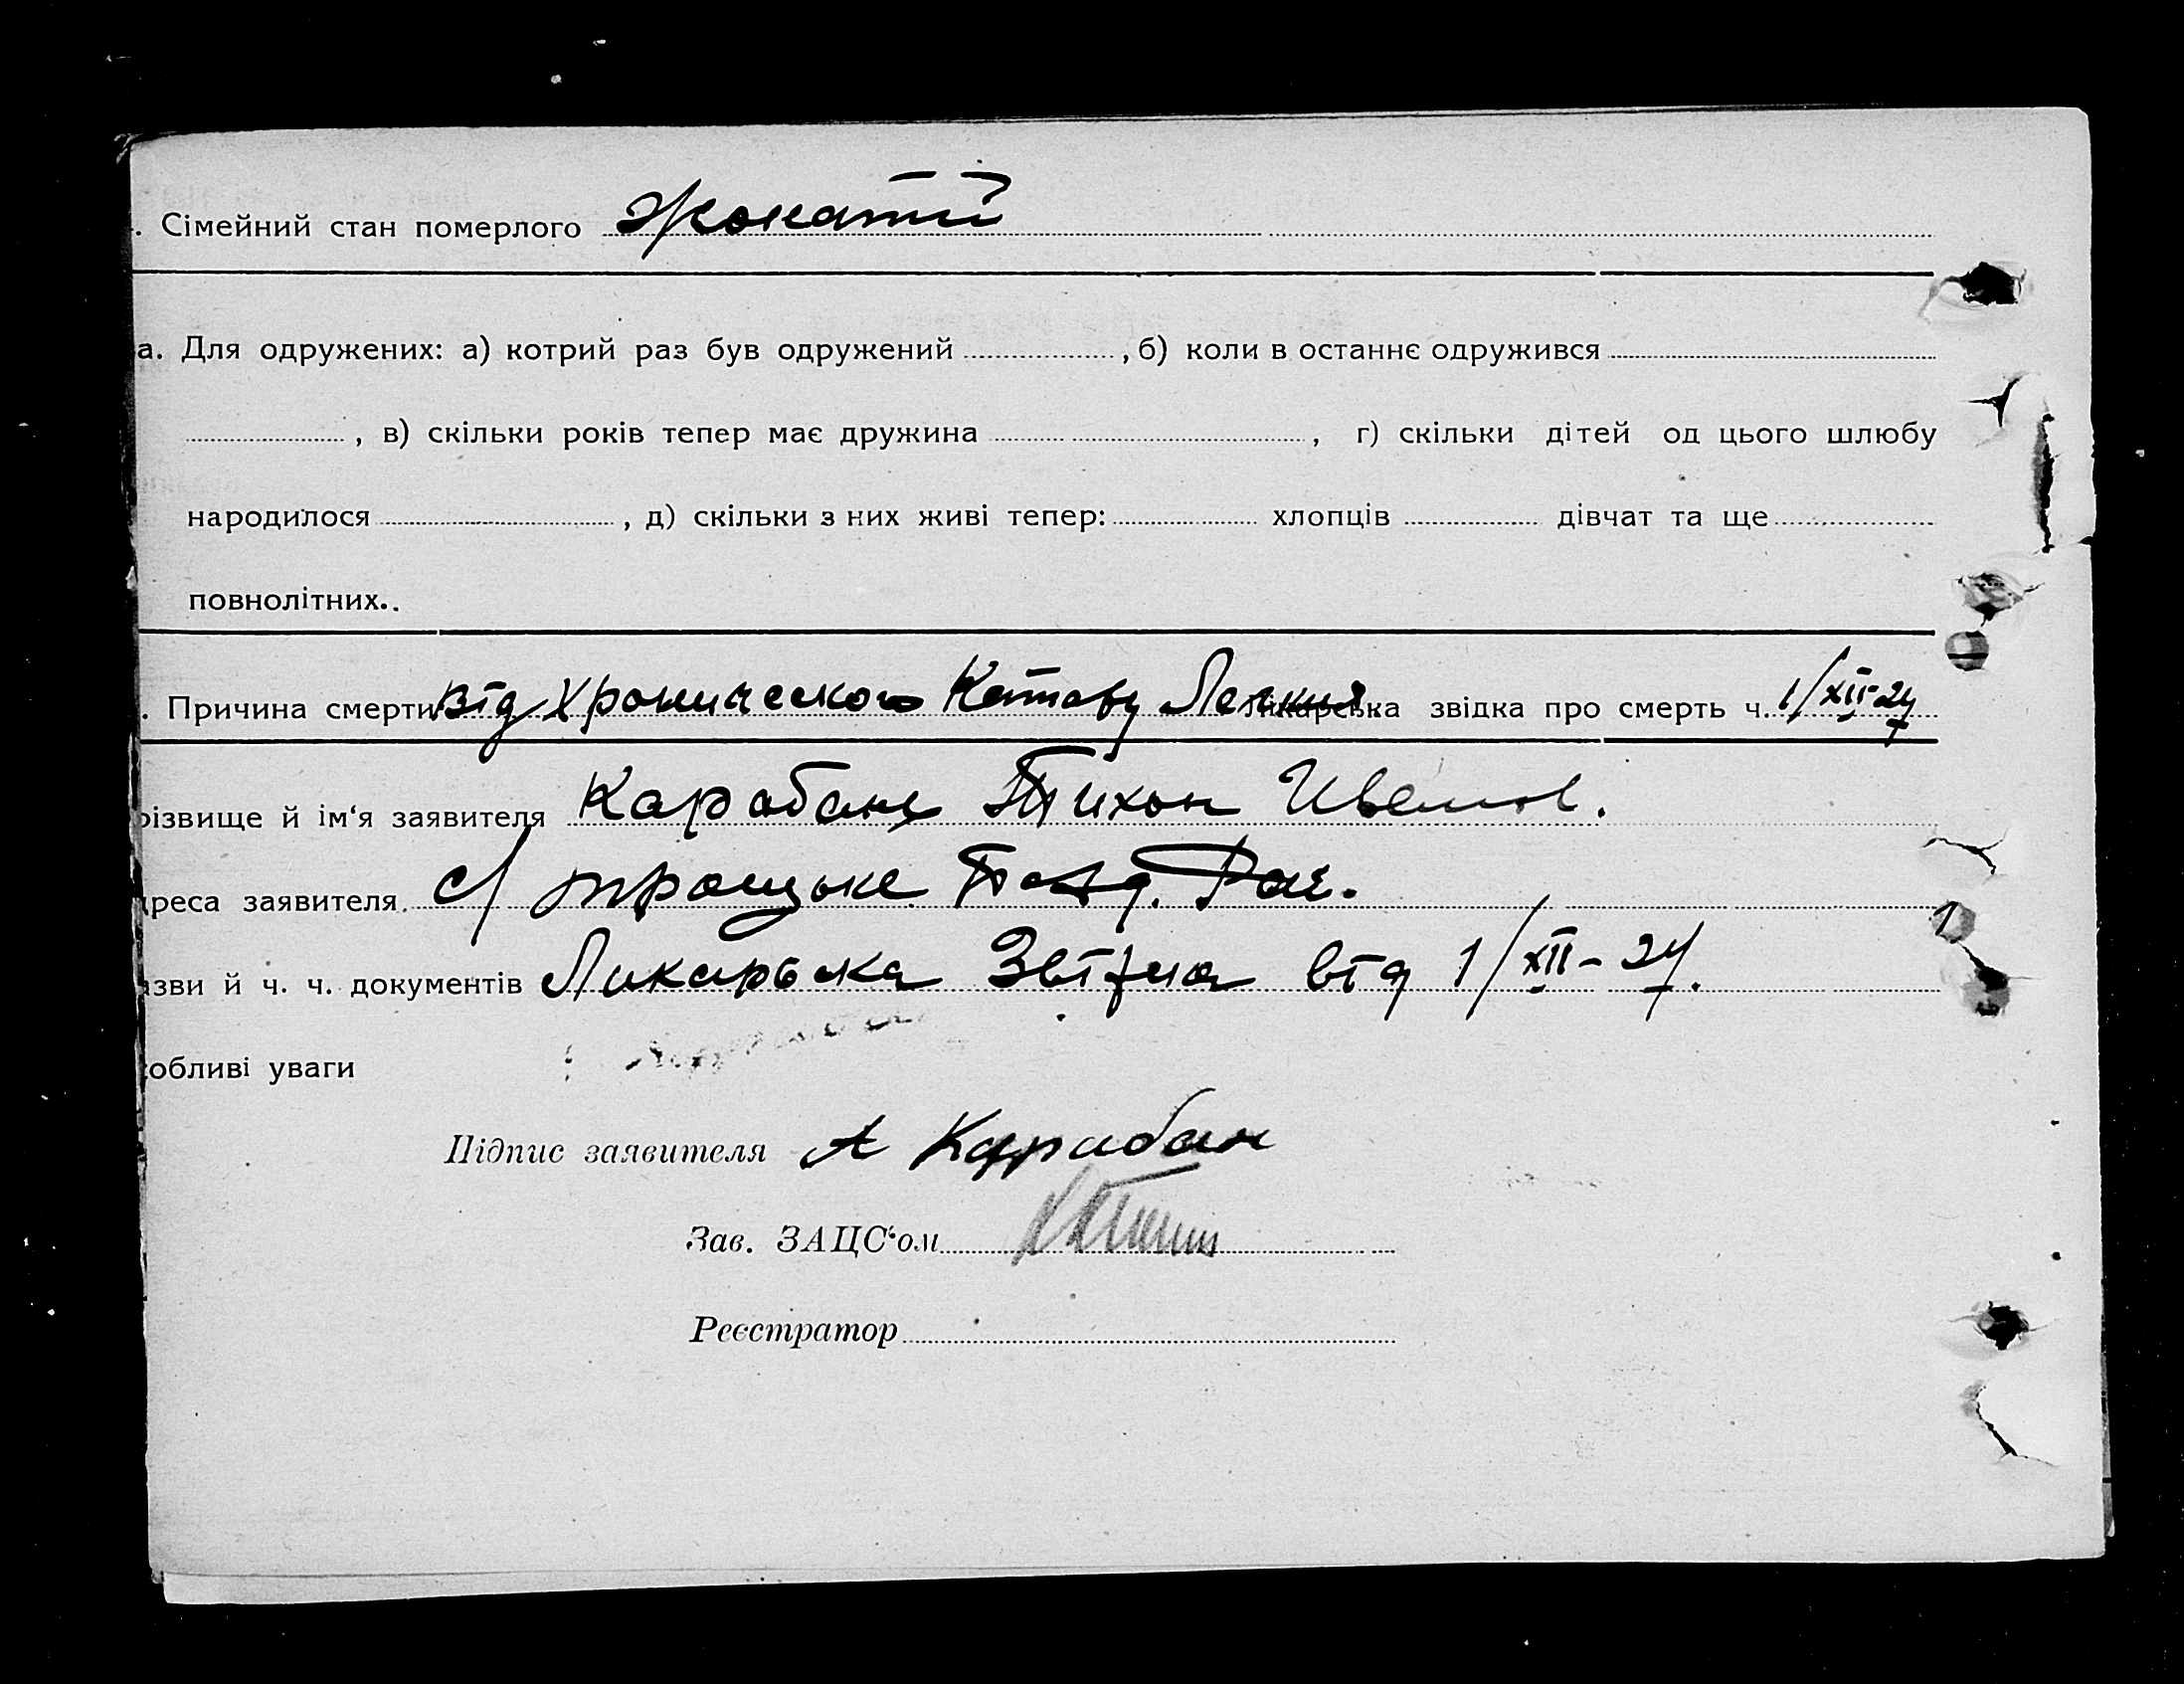 . Сімейний стан померлого Жонатий
а. Для одружених: а) котрий раз був одружений , б) коли в останнє одружився
, в) скільки років тепер має дружина , г) скільки дітей од цього шлюбу
народилося , д) скільки з них живі тепер: хлопців дівчат та ще
повнолітних..
. Причина смерти від Хронического Лікарська звідка про смерть ч. 1/XII-24
різвище й ім‘я заявителя Карабань Тихон Иванов.
дреса заявителя. с/ троицьке Рае.
зви й ч. ч. документів Ликарьска від 1/XII-24.
обливі уваги
Підпис заявителя А Карабан
Зав. ЗАЦС‘ом
Реєстратор